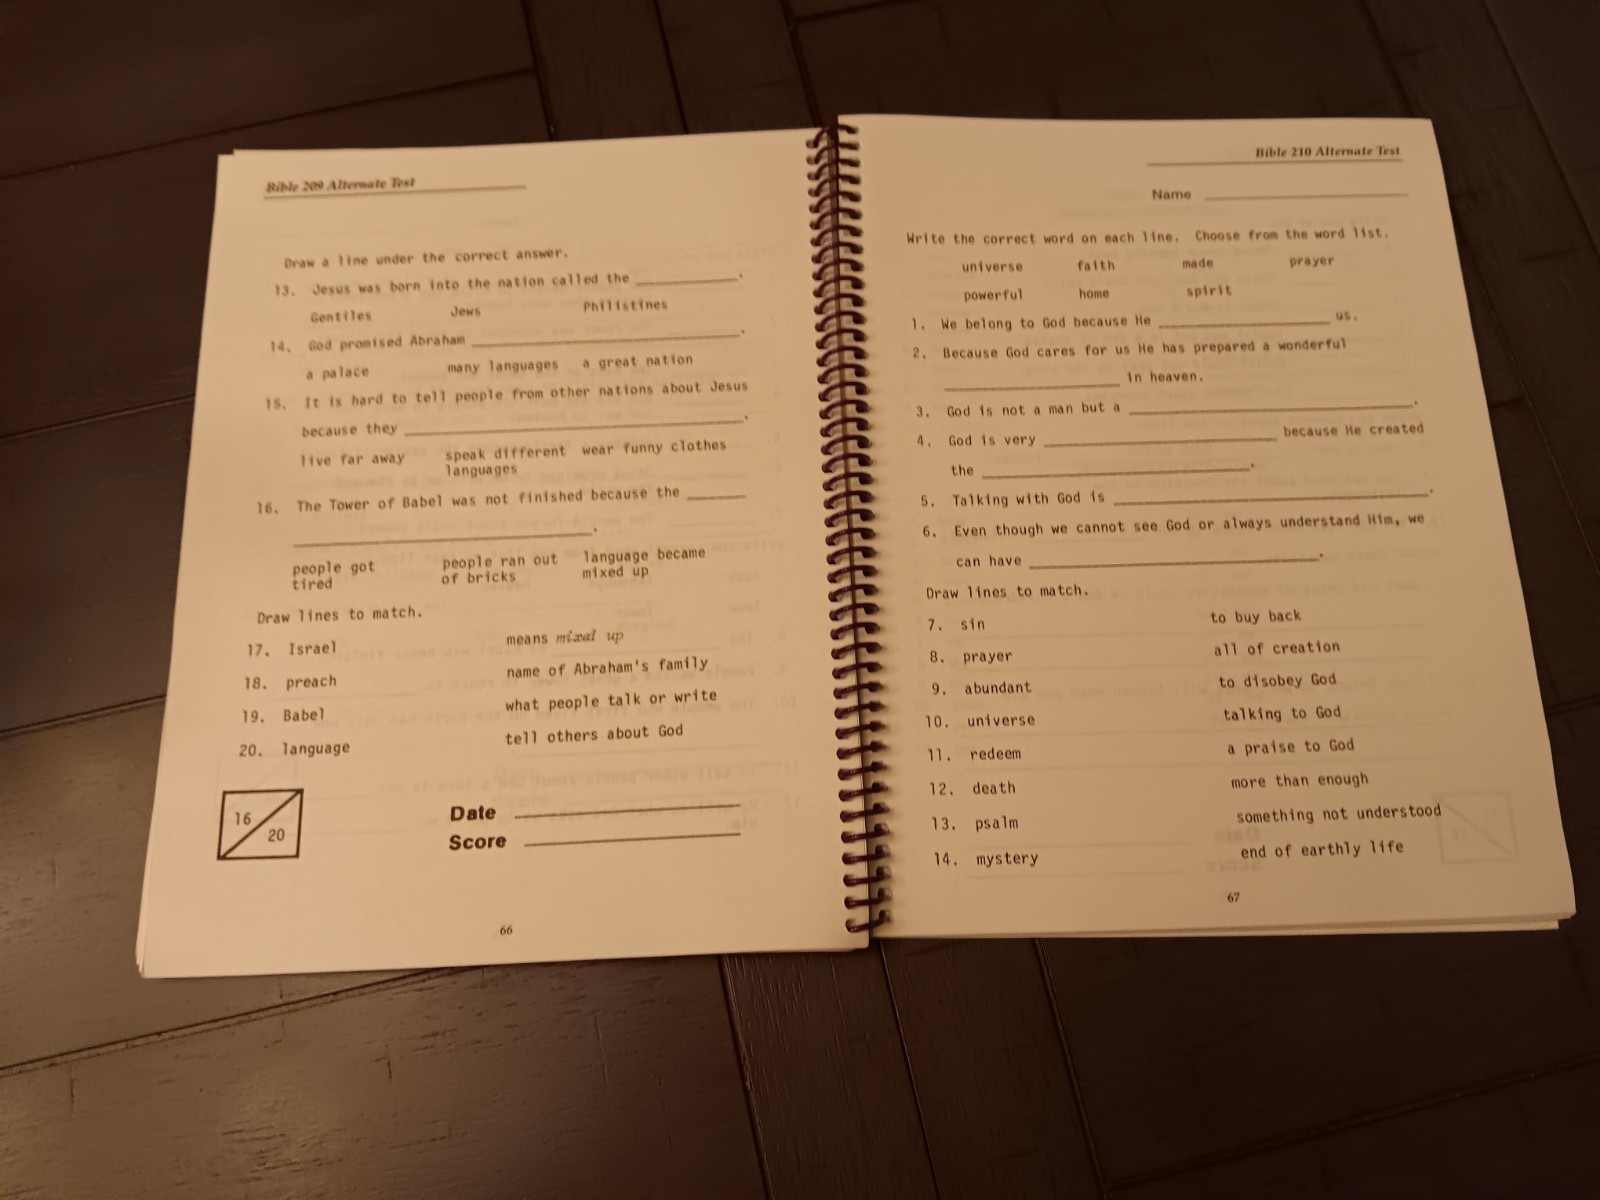 Bible 209 Alternate Test
Draw a line under the correct answer.
13. Jesus was born into the nation called the ________.
Gentiles Jews Philistines
14. God promised Abraham ________.
a palace many languages a great nation
15. It is hard to tell people from other nations about Jesus
because they ________.
live far away speak different wear funny clothes
languages
16. The Tower of Babel was not finished because the ________
________.
people got people ran out language became
tired of bricks mixed up
Draw lines to match.
17. Israel means mixed up
18. preach name of Abraham's family
19. Babel what people talk or write
20. language tell others about God
16
20
Date ________
Score ________
66
Bible 210 Alternate Test
Name ________
Write the correct word on each line. Choose from the word list.
universe faith made prayer
powerful home spirit
1. We belong to God because He ________ us.
2. Because God cares for us He has prepared a wonderful
________ in heaven.
3. God is not a man but a ________.
4. God is very ________ because He created
the ________.
5. Talking with God is ________.
6. Even though we cannot see God or always understand Him, we
can have ________.
Draw lines to match.
7. sin to buy back
8. prayer all of creation
9. abundant to disobey God
10. universe talking to God
11. redeem a praise to God
12. death more than enough
13. psalm something not understood
14. mystery end of earthly life
67